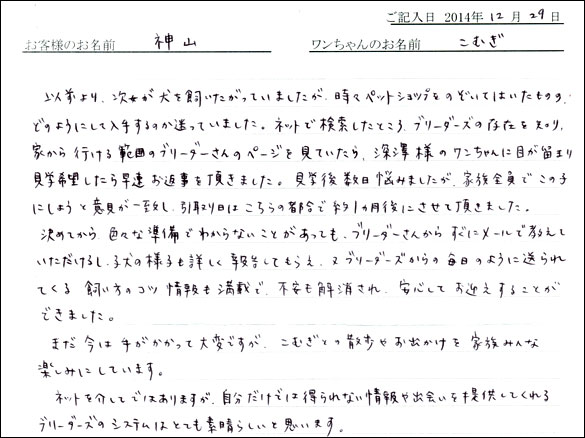 ご記入日 2014年 12月 29日
お客様のお名前 神山 ワンちゃんのお名前 こむぎ
以前より、次女が犬を飼いたがっていましたが、時々ペットショップをのぞいてはいたものの、
どのようにして入手するのか迷っていました。ネットで検索したところ、ブリーダーズの存在を知り、
家から行ける範囲のブリーダーさんのページを見ていたら、深澤様のワンちゃんに目が留まり
見学希望したら早速お返事を頂きました。見学後数日悩みましたが、家族全員でこの子
にしようと意見が一致し、引取り日はこちらの都合で約1ヵ月後にさせて頂きました。
決めてから、色々な準備でわからないことがあっても、ブリーダーさんからすぐにメールで教えて
いただけるし、子犬の様子も詳しく報告してもらえ、又ブリーダーズからの毎日のように送られ
てくる飼い方のコツ情報も満載で、不安も解消され、安心してお迎えすることが
できました。
まだ今は手がかかって大変ですが、こむぎとの散歩やお出かけを家族みんな
楽しみにしています。
ネットを介してではありますが、自分だけでは得られない情報や出会いを提供してくれる
ブリーダーズのシステムはとても素晴らしいと思います。